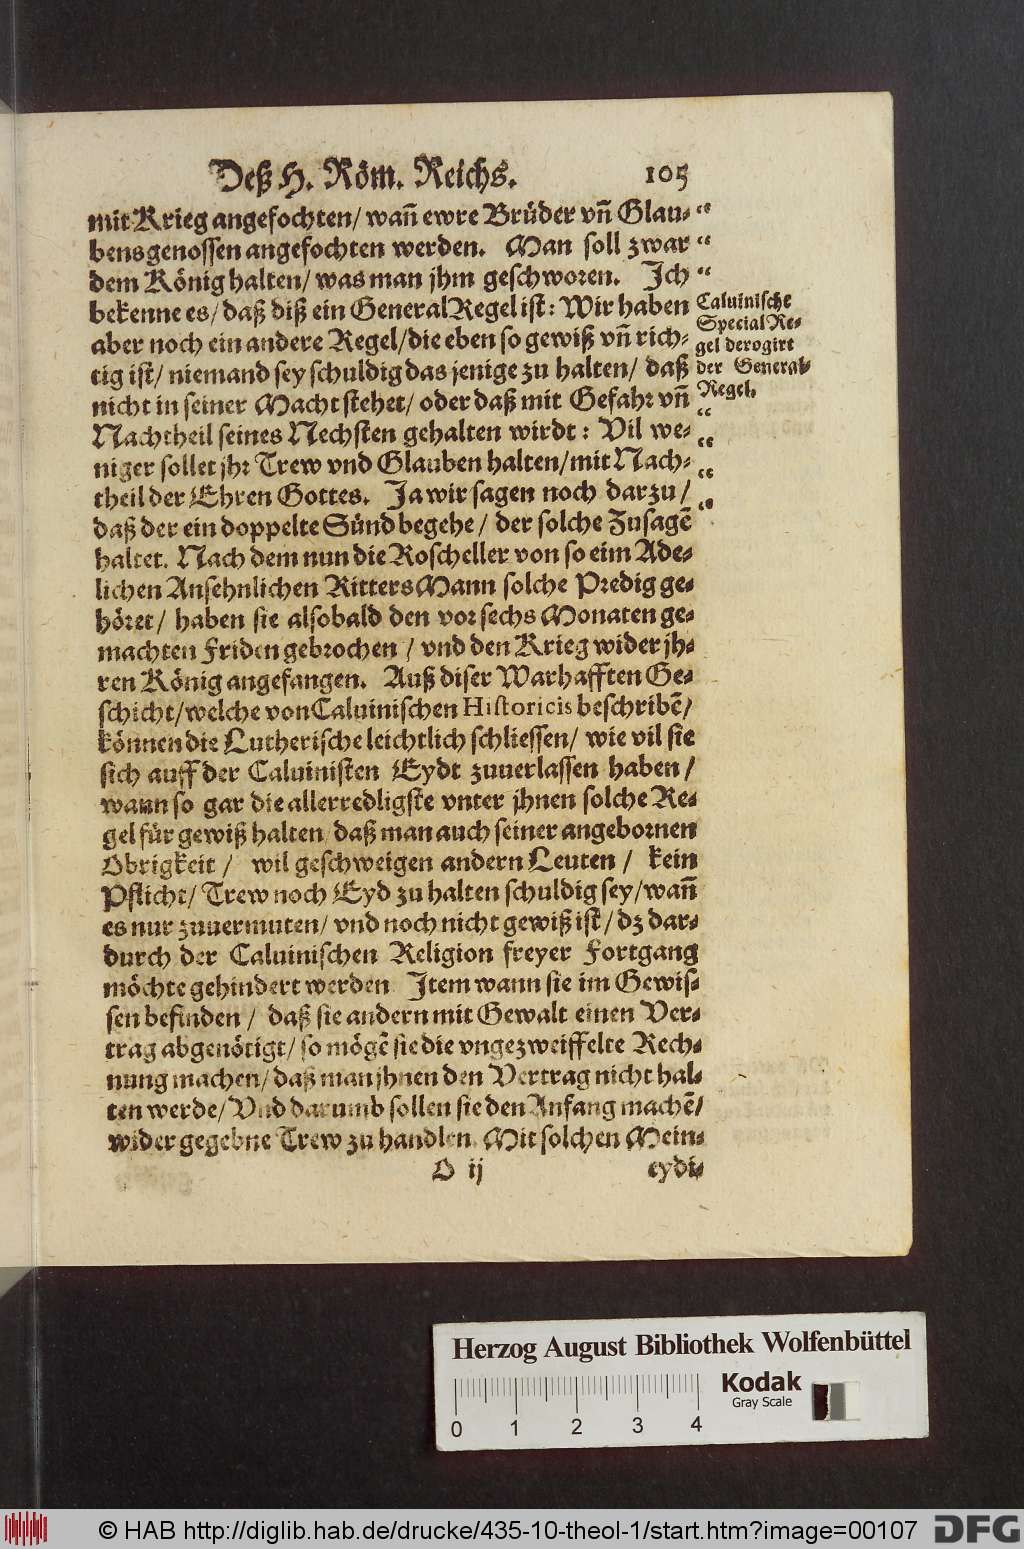 Deß H. Röm. Reichs. 105
mit Krieg angefochten/ wañ ewre Brüder vñ Glau- “
bensgenossen angefochten werden. Man soll zwar “
dem König halten/ was man jhm geschworen. Jch “
bekenne es/ daß diß ein General Regel ist: Wir haben
aber noch ein andere Regel/ die eben so gewiß vñ rich-
tig ist/ niemand sey schuldig das jenige zu halten/ daß
nicht in seiner Macht stehet/ oder daß mit Gefahr vñ
Nachtheil seines Nechsten gehalten wirdt: Vil we-
niger sollet jhr Trew vnd Glauben halten/ mit Nach-
theil der Ehren Gottes. Ja wir sagen noch darzu/
daß der ein doppelte Sünd begehe/ der solche Zusagẽ
haltet. Nach dem nun die Roscheller von so eim Ade-
lichen Ansehnlichen Ritters Mann solche Predig ge-
höret/ haben sie alsobald den vor sechs Monaten ge-
machten Friden gebrochen/ vnd den Krieg wider jh-
ren König angefangen. Auß diser Warhafften Ge-
schicht/ welche von Caluinischen Historicis beschribẽ/
können die Lutherische leichtlich schliessen/ wie vil sie
sich auff der Caluinisten Eydt zuuerlassen haben/
wann so gar die allerredligste vnter jhnen solche Re-
gel für gewiß halten daß man auch seiner angebornen
Obrigkeit/ wil geschweigen andern Leuten/ kein
Pflicht/ Trew noch Eyd zu halten schuldig sey/ wañ
es nur zuuermuten/ vnd noch nicht gewiß ist/ dz dar-
durch der Caluinischen Religion freyer Fortgang
möchte gehindert werden Jtem wann sie im Gewis-
sen befinden/ daß sie andern mit Gewalt einen Ver-
trag abgenötigt/ so mögẽ sie die vngezweiffelte Rech-
nung machen/ daß man jhnen den Vertrag nicht hal-
ten werde/ Vnd darumb sollen sie den Anfang machẽ/
wider gegebne Trew zu handlen. Mit solchen Mein-
O ij eydi-
Caluinische
Special Re-
gel derogirt
der General-
Regel.
“
“
“
“
Herzog August Bibliothek Wolfenbüttel
0 1 2 3 4
Kodak
Gray Scale
© HAB http://diglib.hab.de/drucke/435-10-theol-1/start.htm?image=00107
DFG